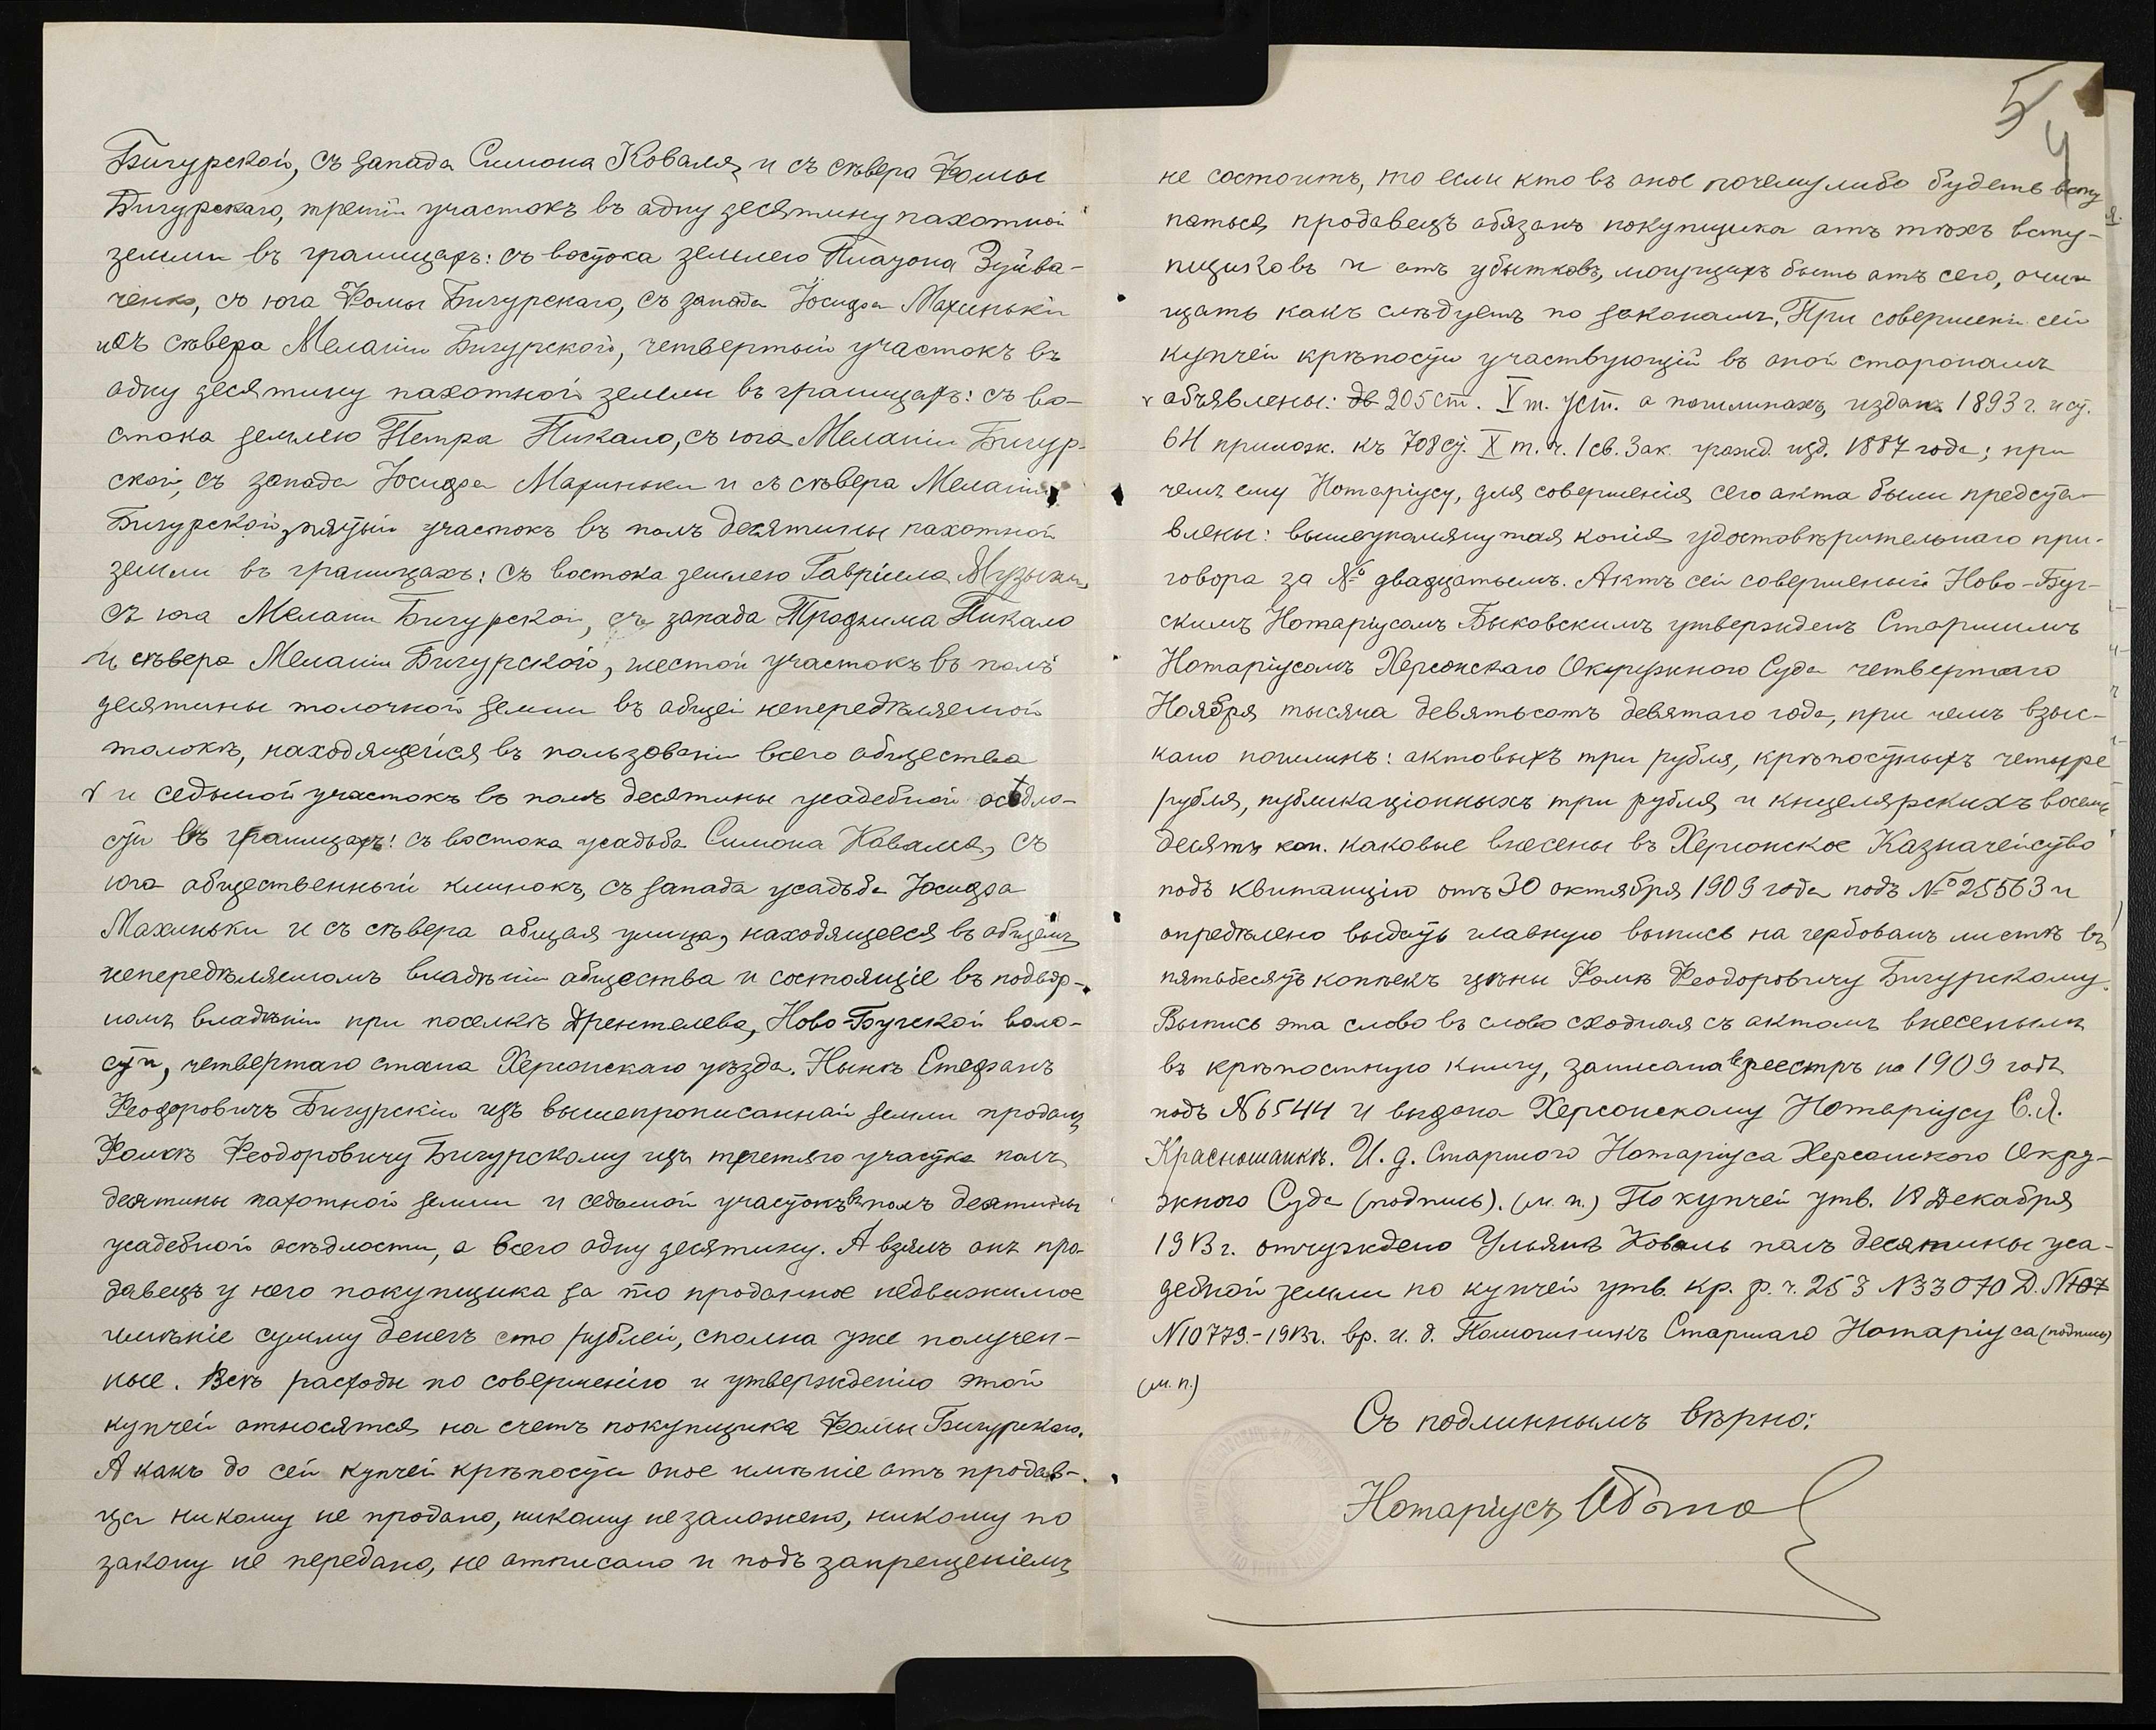 Бигурской, съ запада Симона Коваля, и съ сѣвера Ѳомы
Бигурскаго, третiй участокъ въ одну десятину пахотной
земли въ границахъ: съ востока землею Платона Зуйва-
ченко, съ юга Ѳомы Бигурскаго, съ запада Iосифа Махиньки
и съ сѣвера Меланiи Бигурской, четвертый участокъ въ
одну десятину пахотной земли въ границахъ: съ во-
стока землею Петра Пикало, съ юга Меланiи Бигур-
ской, съ запада Iосифа Махиньки и съ сѣвера Меланiи
Бигурской, пятый участокъ въ полъ десятины пахотной
земли въ границахъ: съ востока землею Гаврiила Музыки,
съ юга Мелани Бигурской, съ запада Трофима Пикало
и сѣвера Меланiи Бигурской, шестой участокъ въ полъ
десятины толочной земли въ общей непередѣляемой
толокѣ, находящейся въ пользованiи всего общества
и седьмой участокъ въ полъ десятины усадебной осѣдло-
сти въ границахъ: съ востока усадьба Симона Коваля, съ
юга общественный клинокъ, съ запада усадьба Iосифа
Махиньки и съ сѣвера общая улица, находящееся въ общемъ
непередѣляемомъ владѣнiи общества и состоящiе въ подвор-
номъ владѣнiи при поселкѣ Дрентелева, Ново-Бугской воло-
сти, четвертаго стана Херсонскаго уѣзда. Нынѣ Стефанъ
Ѳеодоровичъ Бигурскiй изъ вышепрописанной земли продалъ
Ѳомѣ Ѳеодоровичу Бигурскому изъ третьяго участка полъ
десятины пахотной земли и седьмой участокъ въ полъ десятины
усадебной осѣдлости, а всего одну десятину. А взялъ онъ про-
давецъ у него покупщика за то проданное недвижимое
имѣнiе сумму денегъ сто рублей, сполна уже получен-
ные. Всѣ расходы по совершенiю и утвержденiю этой
купчей относятся на счетъ покупщика Ѳомы Бигурскаго.
А какъ до сей купчей крѣпости оное имѣнiе отъ продав-
ца никому не продано, никому не заложено, никому по
закону не передано, не отписано и подъ запрещенiемъ
5
4
не состоитъ, то если кто въ оное почему либо будетъ всту
паться продавецъ обязанъ покупщика отъ тѣхъ всту-
пщиковъ и отъ убытковъ, могущихъ быть отъ сего, очи
щать какъ слѣдуетъ по законамъ. При совершенiи сей
купчей крѣпости участвующiй въ оной сторонамъ
объявлены: 205 ст. V т. уст. о пошлинахъ, издан. 1893 г. и ст.
64 прилож. къ 708 ст. X т. ч. 1 св. Зак. гражд. изд. 1887 года; при
чемъ ему Нотарiусу, для совершенiя сего акта были предста-
влены: вышеупомянутая копiя удостовѣрительнаго при-
говора за № двадцатымъ. Актъ сей совершеный Ново-Буг-
скимъ Нотарiусомъ Быковскимъ утвержденъ Старшимъ
Нотарiусомъ Херсонскаго Окружного Суда четвертаго
Ноября тысяча девятьсотъ девятаго года, при чемъ взыс-
кано пошлинъ: актовыхъ три рубля, крѣпостныхъ четыре
рубля, публикацiонныхъ три рубля и кнцелярскихъ восемь
десятъ коп. каковые внесены въ Херсонское Казначейство
подъ квитанцiю отъ 30 октября 1909 года подъ № 25563 и
опредѣлено выдать главную выпись на гербовомъ листѣ въ
пятьдесятъ копѣекъ цѣны Ѳомѣ Ѳеодоровичу Бигурскому.
Выпись эта слово въ слово сходная съ актомъ внесенымъ
въ крѣпостную книгу, записана въ реестръ на 1909 годъ
подъ № 6544 и выдана Херсонскому Нотарiусу С. Я.
Красношапкѣ. И. д. Старшого Нотарiуса Херсонского Окру-
жного Суда (подпись). (м. п.) По купчей утв. 18 Декабря
1913 г. отчуждено Ульянѣ Коваль полъ десятины уса-
дебной земли по купчей утв. кр. р. ч. 253 № 33070 Д. №107
№10779.-1913г. вр. и. д. Помошникъ Старшаго Нотарiуса (подпись)
(м. п.)
Съ подлиннымъ вѣрно:
Нотарiусъ